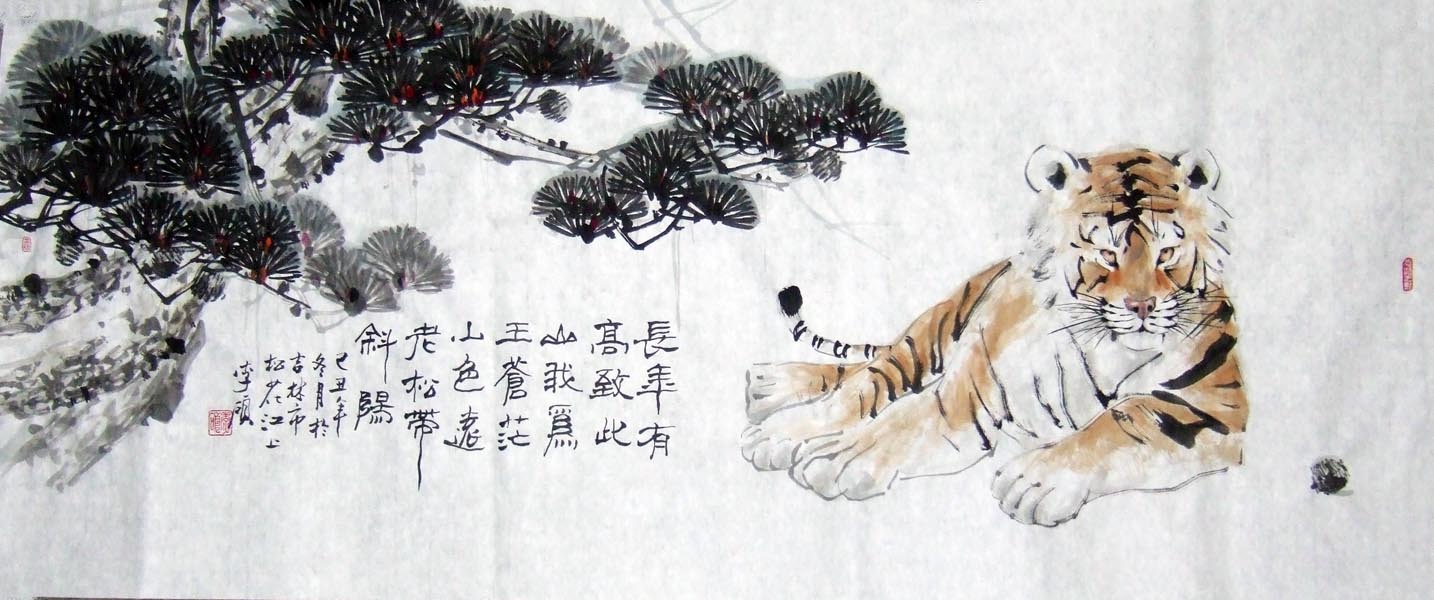 長年有
高致此
山我爲
王蒼茫
山色遠
老松帶
斜陽
己丑年
冬月於
吉林市
松花江上